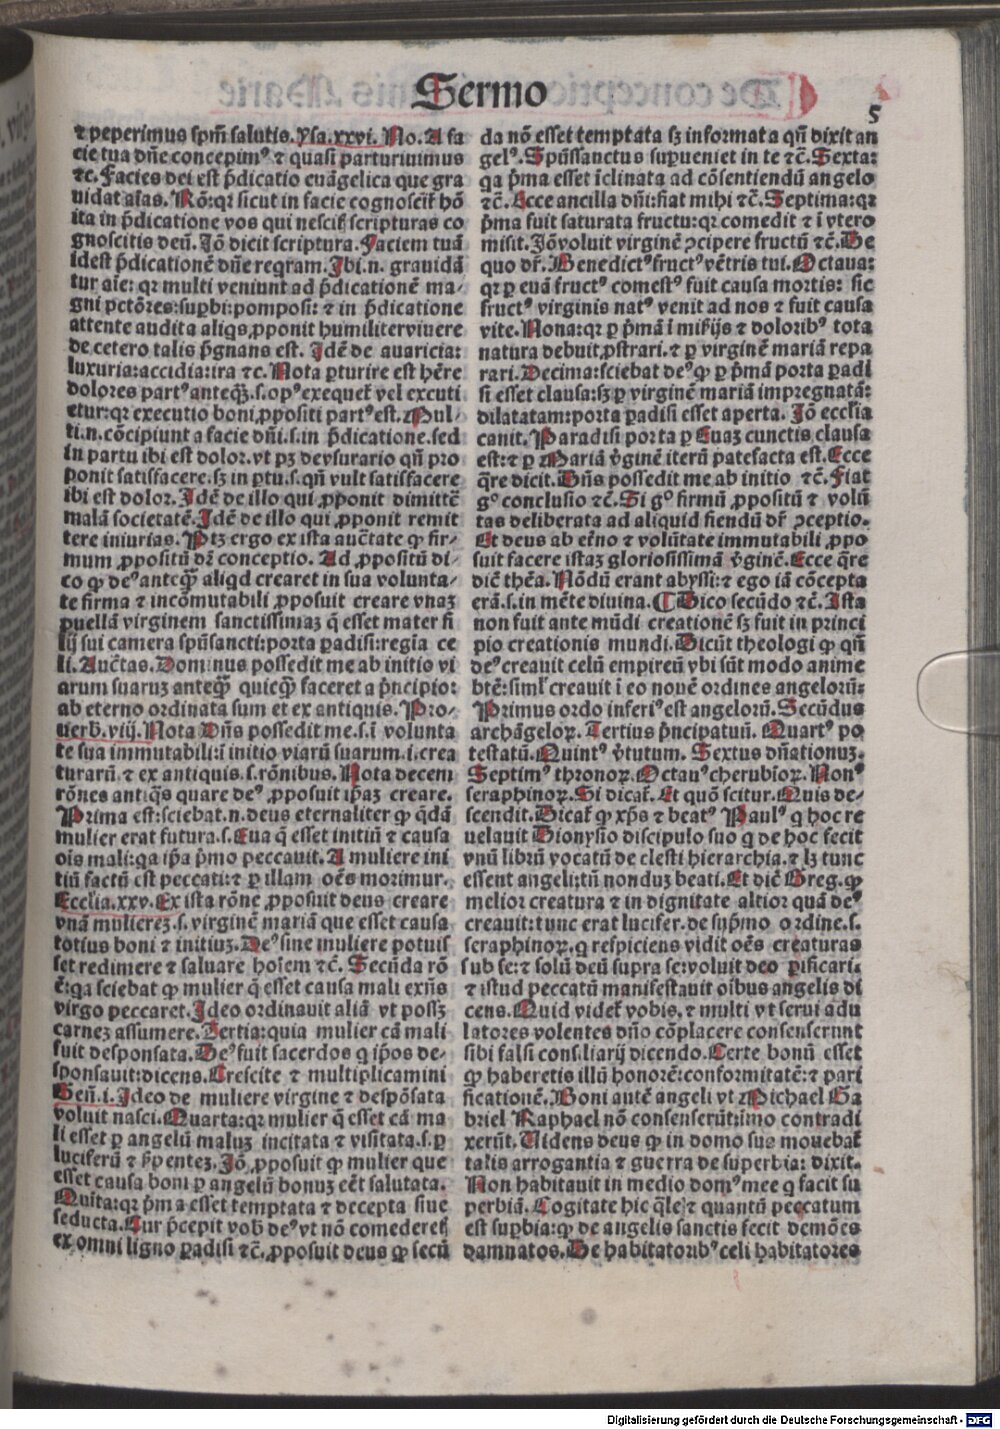 Sermo
5
⁊ peperimus spm̄ salutis. ysa. xxvi. No. A fa
cie tua dn̄e concepimꝰ ⁊ quasi parturiuimus
⁊c. Facies dei est p̄dicatio euāgelica que gra
uidat aīas. Rō: qꝛ sicut in facie cognoscit̄ hō
ita in p̄dicatione vos qui nescit̄ scripturas co
gnoscitis deū. Iō dicit scriptura. Faciem tuā
idest p̄dicationē dn̄e reqram. Ibi .n. grauidā
tur aīe: qꝛ multi veniunt ad p̄dicationē ma-
gni pctōres: supbi: pomposi: ⁊ in p̄dicatione
attente audita aliqs ꝓponit humiliter viuere
de cetero talis p̄gnans est. Idē de auaricia:
luxuria: accidia: ira ⁊c. Nota ꝑturire est hēre
dolores partꝰ anteqꝫ .s. opꝰ exequet̄ vel excuti
etur: qꝛ executio boni ꝓpositi partꝰ est. Mul-
ti .n. cōcipiunt a facie dn̄i .s. in p̄dicatione. sed
in partu ibi est dolor. vt pꝫ de vsurario qn̄ pro
ponit satisfacere. sꝫ in ꝑtu .s. qn̄ vult satisfacere
ibi est dolor. Idē de illo qui ꝓponit dimittē
malā societatē. Idē de illo qui ꝓponit remit
tere iniurias. Ptꝫ ergo ex ista auc̄tate ꝙ fir-
mum ꝓpositū dr̄ conceptio. Ad ꝓpositū di-
co ꝙ deꝰ anteqꝫ aliqd crearet in sua volunta-
te firma ⁊ incōmutabili ꝓposuit creare vnaꝫ
puellā virginem sanctissimaꝫ q̄ esset mater fi
lij sui camera spūsancti: porta paradisi: regīa ce
li. Auc̄tas. Dominus possedit me ab initio vi
arum suaruꝫ anteqꝫ quicqꝫ faceret a p̄ncipio:
ab eterno ordinata sum et ex antiquis. Pro-
uerb. viij. Nota Dn̄s possedit me .s. ī volunta
te sua immutabili: ī initio viarū suarum .i. crea
turarū ⁊ ex antiquis .s. rōnibus. Nota decem
rōnes antiq̄s quare deꝰ ꝓposuit ip̄aꝫ creare.
Prima est: sciebat .n. deus eternaliter ꝙ q̄dā
mulier erat futura .s. Eua q̄ esset initiū ⁊ causa
oīs mali: qa ip̄a p̄mo peccauit. A muliere ini
tiū factū est peccati: ⁊ ꝑ illam oēs morimur.
Ecclīa. xxv. Ex ista rōne ꝓposuit deus creare
vnā mulierez .s. virginē mariā que esset causa
totius boni ⁊ initiuꝫ. Deꝰ sine muliere potuis
set redimere ⁊ saluare hoīem ⁊c. Secūda rō
ē: qa sciebat ꝙ mulier q̄ esset causa mali exn̄s
virgo peccaret. Ideo ordinauit aliā vt possꝫ
carneꝫ assumere. Tertia: quia mulier cā mali
fuit desponsata. Deꝰ fuit sacerdos q ip̄os de-
sponsauit: dicens. Crescite ⁊ multiplicamini
Geñ. i. Ideo de muliere virgine ⁊ despōsata
voluit nasci. Quarta: qꝛ mulier q̄ esset cā ma
li esset ꝑ angelū maluꝫ incitata ⁊ visitata .s. ꝑ
luciferū ⁊ ẜpentez. Iō ꝓposuit ꝙ mulier que
esset causa boni ꝑ angelū bonuꝫ eēt salutata.
Quīta: qꝛ p̄ma esset temptata ⁊ decepta siue
seducta. Cur p̄cepit vob̄ deꝰ vt nō comederet̄
ex omni ligno paradisi ⁊c̄. ꝓposuit deus ꝙ secū
da nō esset temptata sꝫ informata qn̄ dixit an
gelꝰ. Spūssanctus supueniet in te ⁊c̄. Sexta:
qa p̄ma esset īclinata ad cōsentiendū angelo
⁊c̄. Ecce ancilla dn̄i: fiat mihi ⁊c̄. Septima: qꝛ
p̄ma fuit saturata fructu: qꝛ comedit ⁊ ī vtero
misit. Iō voluit virginē ꝯcipere fructū ⁊c̄. De
quo dr̄. Benedictꝰ fructꝰ vētris tui. Octaua:
qꝛ ꝑ euā fructꝰ comestꝰ fuit causa mortis: sic
fructꝰ virginis natꝰ venit ad nos ⁊ fuit causa
vite. Nona: qꝛ ꝑ p̄mā ī miserijs ⁊ doloribꝰ tota
natura debuit ꝓstrari. ⁊ ꝑ virginē mariā repa
rari. Decima: sciebat deꝰ ꝙ ꝑ p̄mā porta paradi
si esset clausa: sꝫ ꝑ virginē mariā impregnatā:
dilatatam: porta paradisi esset aperta. Iō ecclīa
canit. Paradisi porta ꝑ Euaꝫ cunctis clausa
est: ⁊ ꝑ Mariā v̄ginē iterū patefacta est. Ecce
q̄re dicit. Dn̄s possedit me ab initio ⁊c̄. Fiat
gͦ conclusio ⁊c̄. Si gͦ firmū ꝓpositū ⁊ volū
tas deliberata ad aliquid fiendū dr̄ ꝯceptio.
Et deus ab et̄no ⁊ volūtate immutabili ꝓpo
suit facere istaꝫ gloriosissimā v̄ginē. Ecce q̄re
dic̄ thēa. Nōdū erant abyssi: ⁊ ego iā cōcepta
erā .s. in mēte diuina. ¶ Dico secūdo ⁊c̄. Ista
non fuit ante mūdi creationē sꝫ fuit in princi
pio creationis mundi. Dicūt theologi ꝙ qn̄
deꝰ creauit celū empireū vbi sūt modo anime
btē: siml̄ creauit ī eo nouē ordines angelorū:
Primus ordo inferiꝰ est angelorū. Secūdus
archāgeloꝝ. Tertius p̄ncipatuū. Quartꝰ po
testatū. Quintꝰ v̄tutum. Sextus dn̄ationuꝫ.
Septimꝰ thronoꝝ. Octauꝰ cherubioꝝ. Nonꝰ
seraphinoꝝ. Si dicat̄. Et quō scitur. Quis de-
scendit. Dicat̄ ꝙ xp̄s ⁊ beatꝰ Paulꝰ q hoc re
uelauit Dionysio discipulo suo q de hoc fecit
vnū librū vocatū de celesti hierarchia. ⁊ lꝫ tunc
essent angeli: tn̄ nonduꝫ beati. Et dic̄ Greg. ꝙ
melior creatura ⁊ in dignitate altior quā deꝰ
creauit: tunc erat lucifer. de sup̄mo ordine .s.
seraphinoꝝ. q respiciens vidit oēs creaturas
sub se: ⁊ solū deū supra se: voluit deo ꝑificari.
⁊ istud peccatū manifestauit oībus angelis di
cens. Quid videt̄ vobis. ⁊ multi vt serui adu
latores volentes dn̄o cōplacere consenserunt
sibi falsi consiliarij dicendo. Certe bonū esset
ꝙ haberetis illū honorē: conformitatē: ⁊ pari
ficationē. Boni autē angeli vt Michael Ga
briel Raphael nō consenserūt: imo contradi
xerūt. Uidens deus ꝙ in domo sua mouebat̄
talis arrogantia ⁊ guerra de superbia: dixit.
Non habitauit in medio domꝰ mee q facit su
perbiā. Cogitate hic q̄le ⁊ quantū peccatum
est supbia: ꝙ de angelis sanctis fecit demōēs
damnatos. De habitatoribꝰ celi habitatores
Digitalisierung gefördert durch die Deutsche Forschungsgemeinschaft - DFG